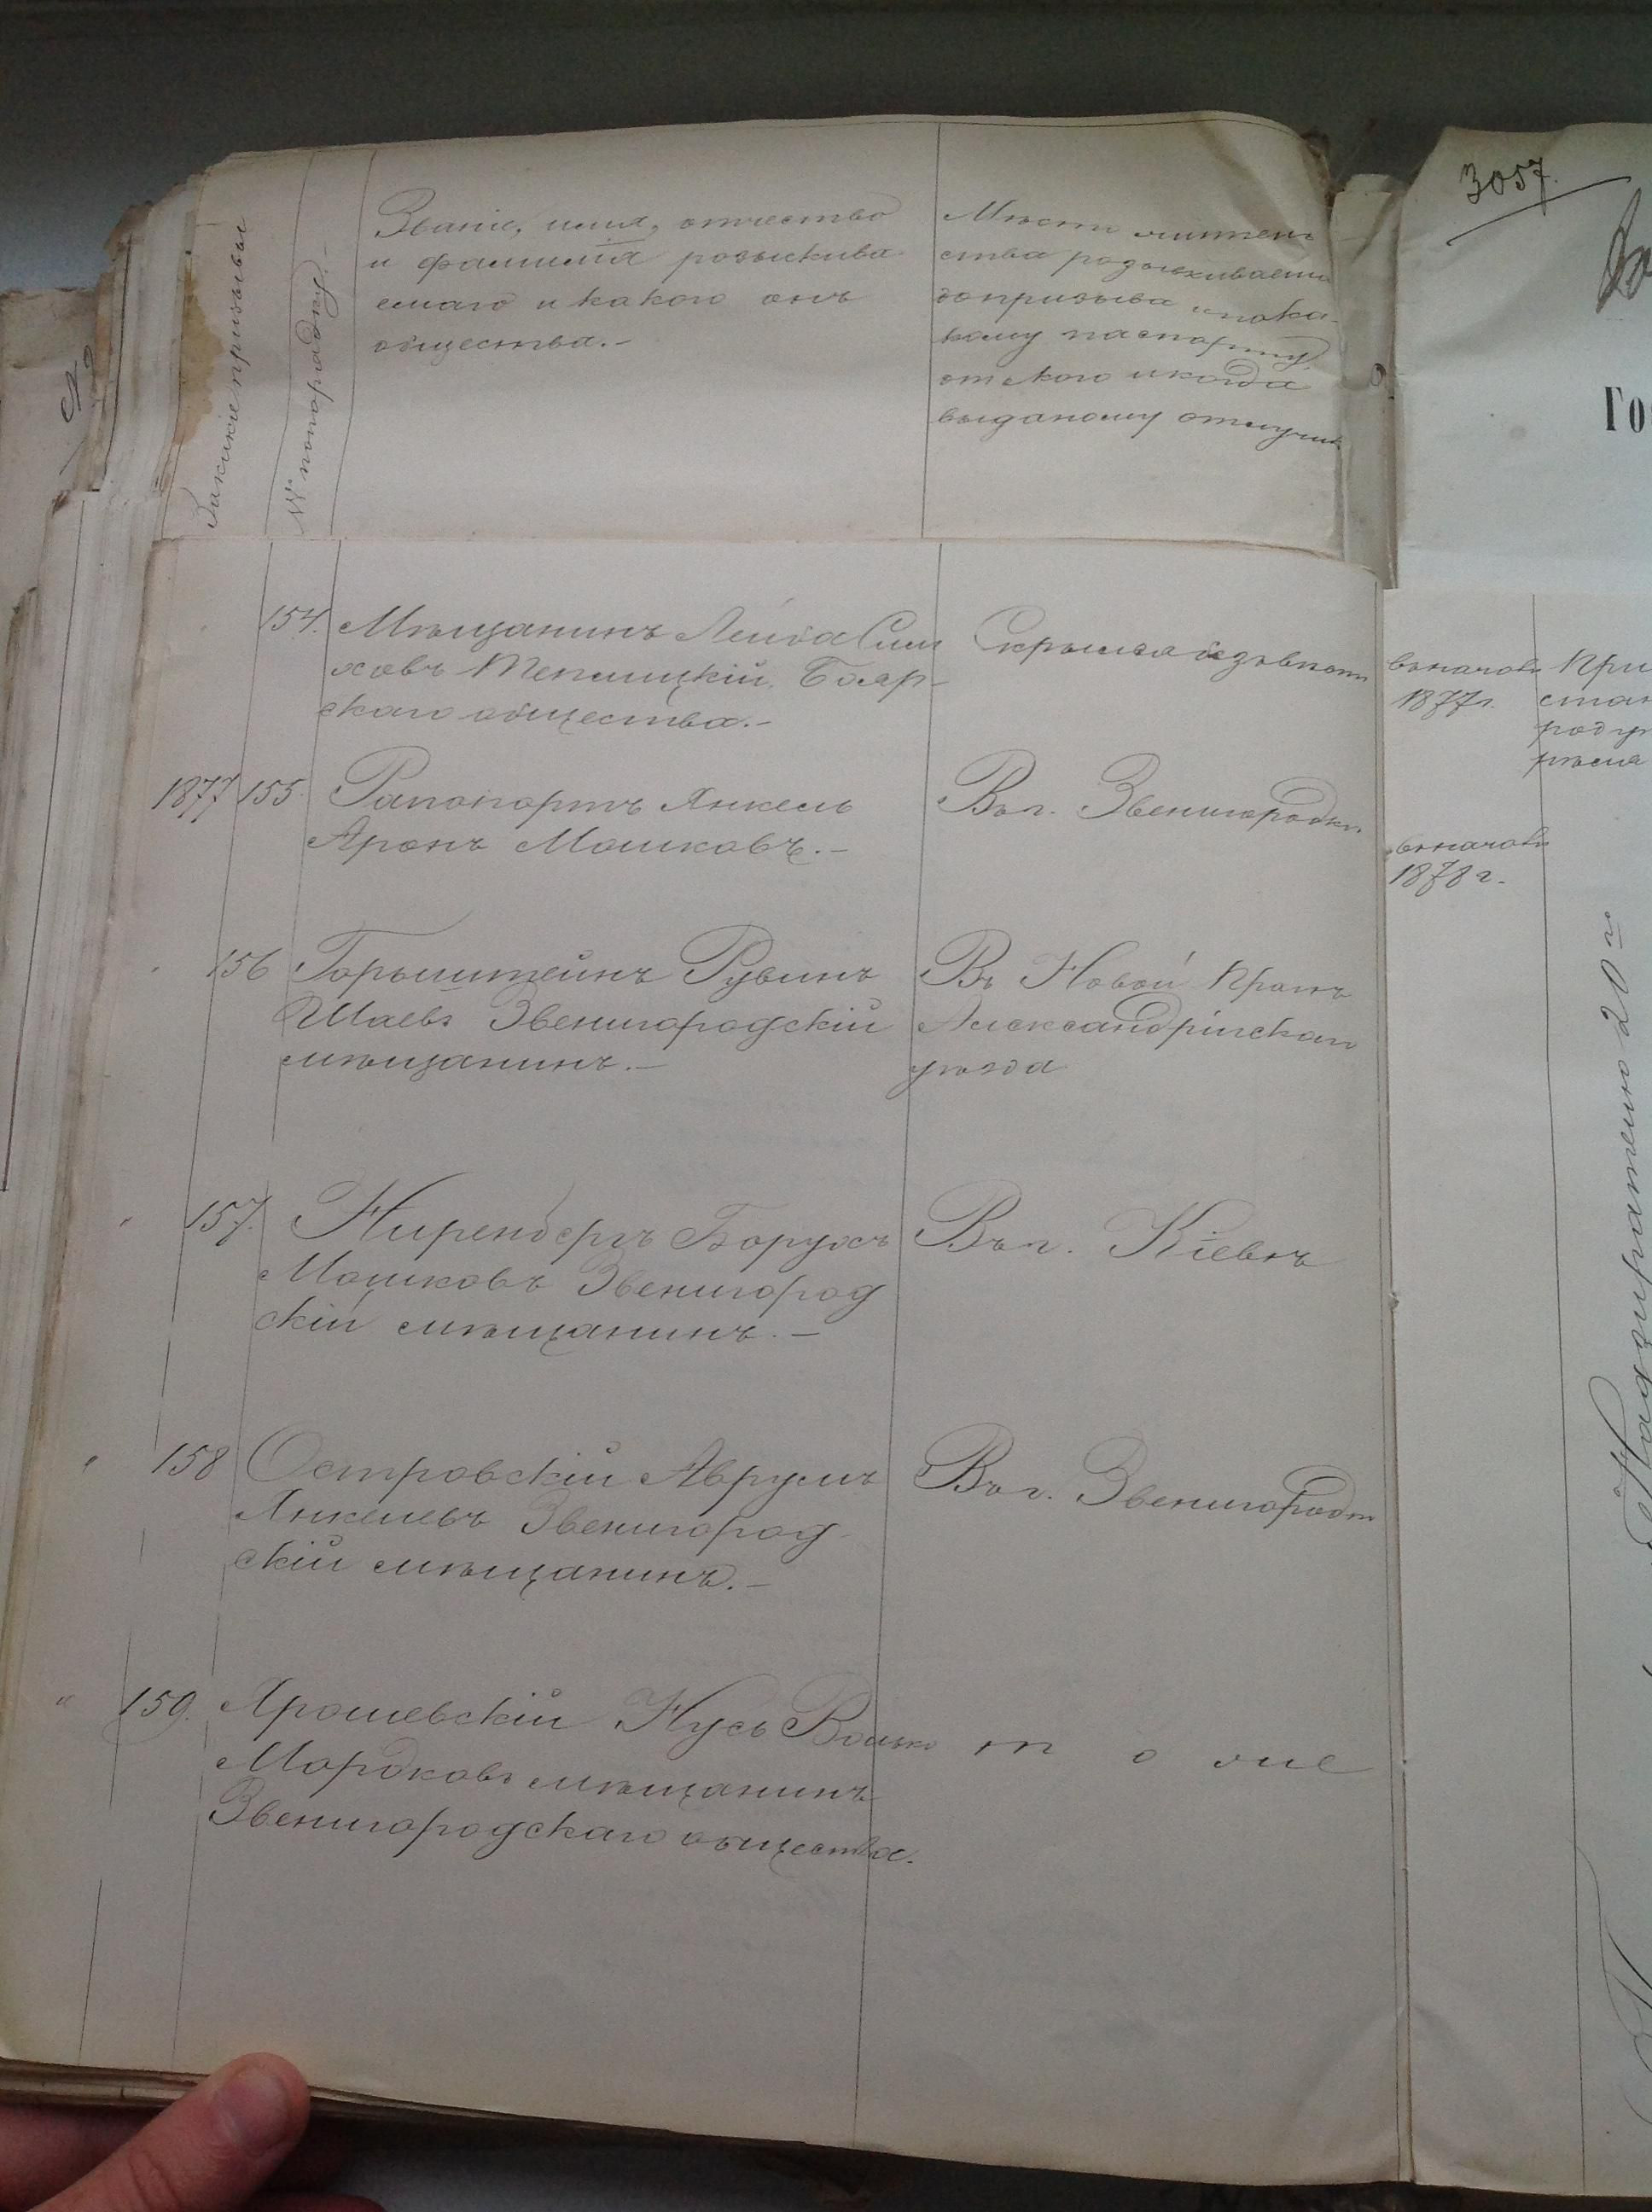 За какіе призывы
№ по порядку.-
Званіе, имя, отчество
и фамилія розыскива
емаго и какого онъ
общества.-
Мѣсто житель
ства розыскиваема
до призыва и по ка-
кому паспорту,
от кого и когда
выданому отлуч
154. Мѣщанинъ Лейба Сим
ховъ Теплицкій, Бояр-
скаго общества.-
Скрылся
1877 155. Рапопортъ Янкель
Аронъ Мошковъ.-
Въ г. Звенигородки
" 156 Горыштейнъ Рувинъ
Шаевъ Звенигородскій
мѣщанинъ.-
Въ Новой Прагѣ
Александрійскаго
уѣзда
" 157. Ниренбергъ Борухъ
Мошковъ Звенигород
скій мѣщанинъ.-
Въ г. Кіевѣ
" 158 Островскій Аврумъ
Янкелевъ Звенигород-
скій мѣщанинъ.-
Въ г. Звенигородк
" 159. Ярошевскій Нусь Волько
Мордковъ мѣщанинъ
Звенигородскаго общества.
т о же
3057.
Го
въ началѣ
1877 г.
въ началѣ
1878 г.
При
стан
роду